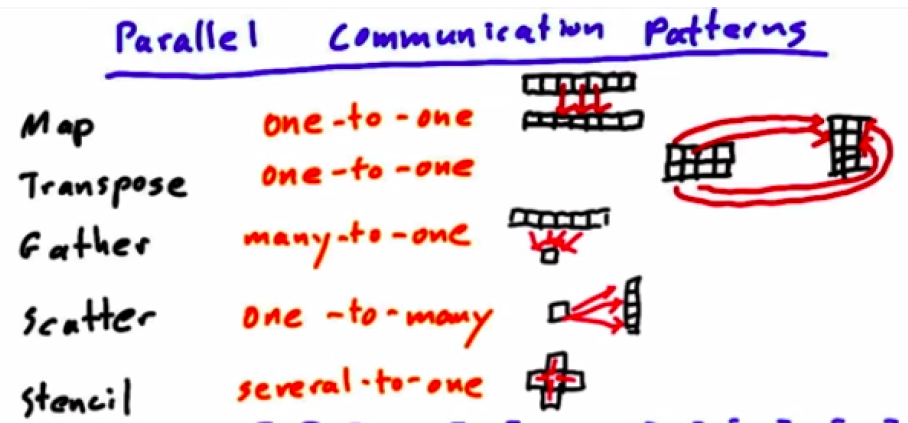 Parallel Communication Patterns
Map one-to-one
Transpose one-to-one
Gather many-to-one
Scatter one-to-many
Stencil several-to-one